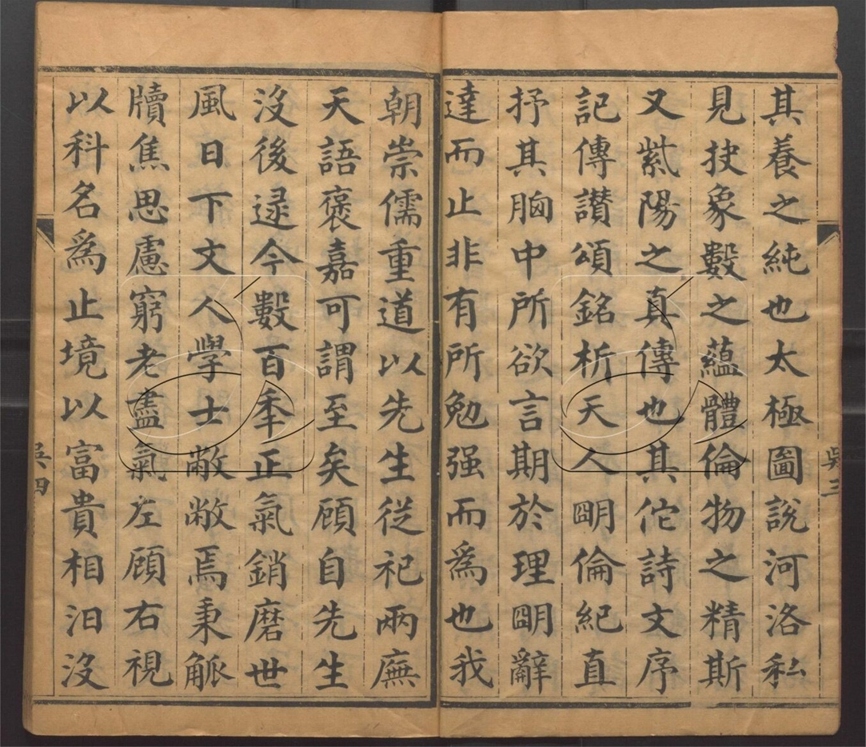 其養之純也太極圖說河洛私
見抉象數之蘊體倫物之精斯
又紫陽之真傳也其佗詩文序
記傳讃頌銘析天人朙倫紀直
抒其胸中所欲言期於理朙辭
達而止非有所勉强而為也我
朝崇儒重道以先生從祀兩廡
天語褒嘉可謂至矣顧自先生
沒後逯今數百秊正氣銷磨世
風日下文人學士敝敝焉秉觚
牘焦思慮窮老盡氣左顧右視
以科名為止境以富貴相汩沒
吳三
吳四